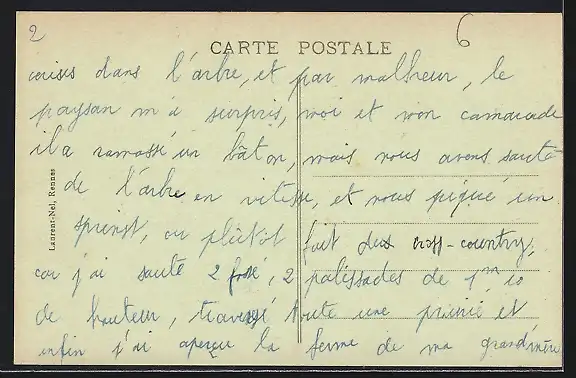 2
6
CARTE POSTALE
cerises dans l'arbre, et par malheur, le
paysan m'a surpris, moi et mon camarade
il a ramassé un bâton, mais nous avons sauté
de l'arbre en vitesse, et nous piqué un
sprint, ou plûtôt fait du cross-country,
car j'ai sauté 2 fossé, 2 palissades de 1m 10
de hauteur, traversé toute une prairie et
enfin j'ai aperçu la ferme de ma grand'mère
Laurent-Nel, Rennes